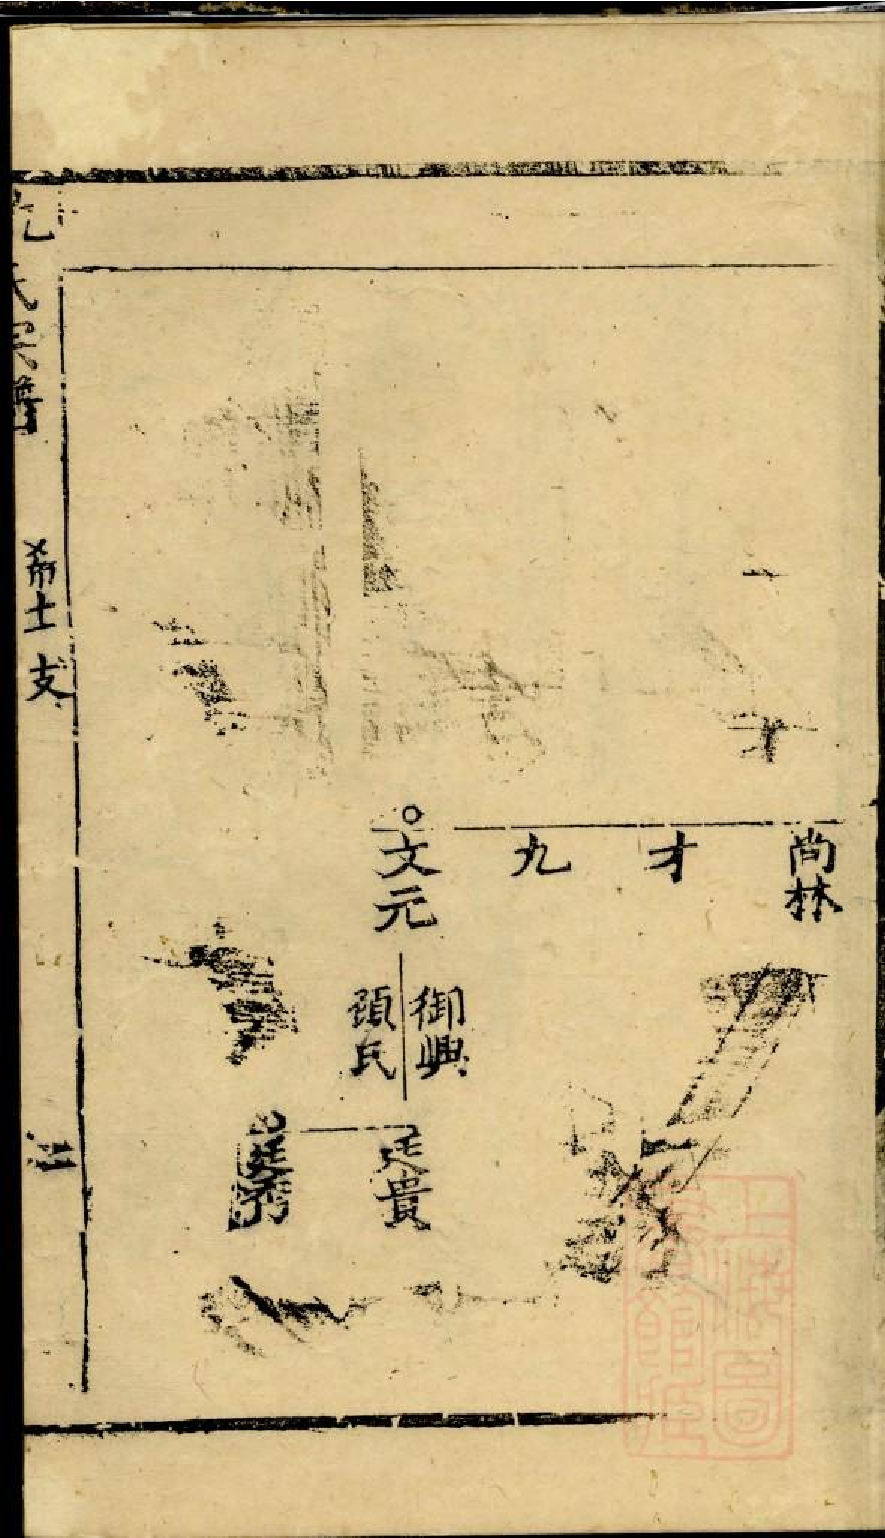 尚林
才
九
○文元
御興
頭氏
廷貴
廷秀
氏宗譜
希士支